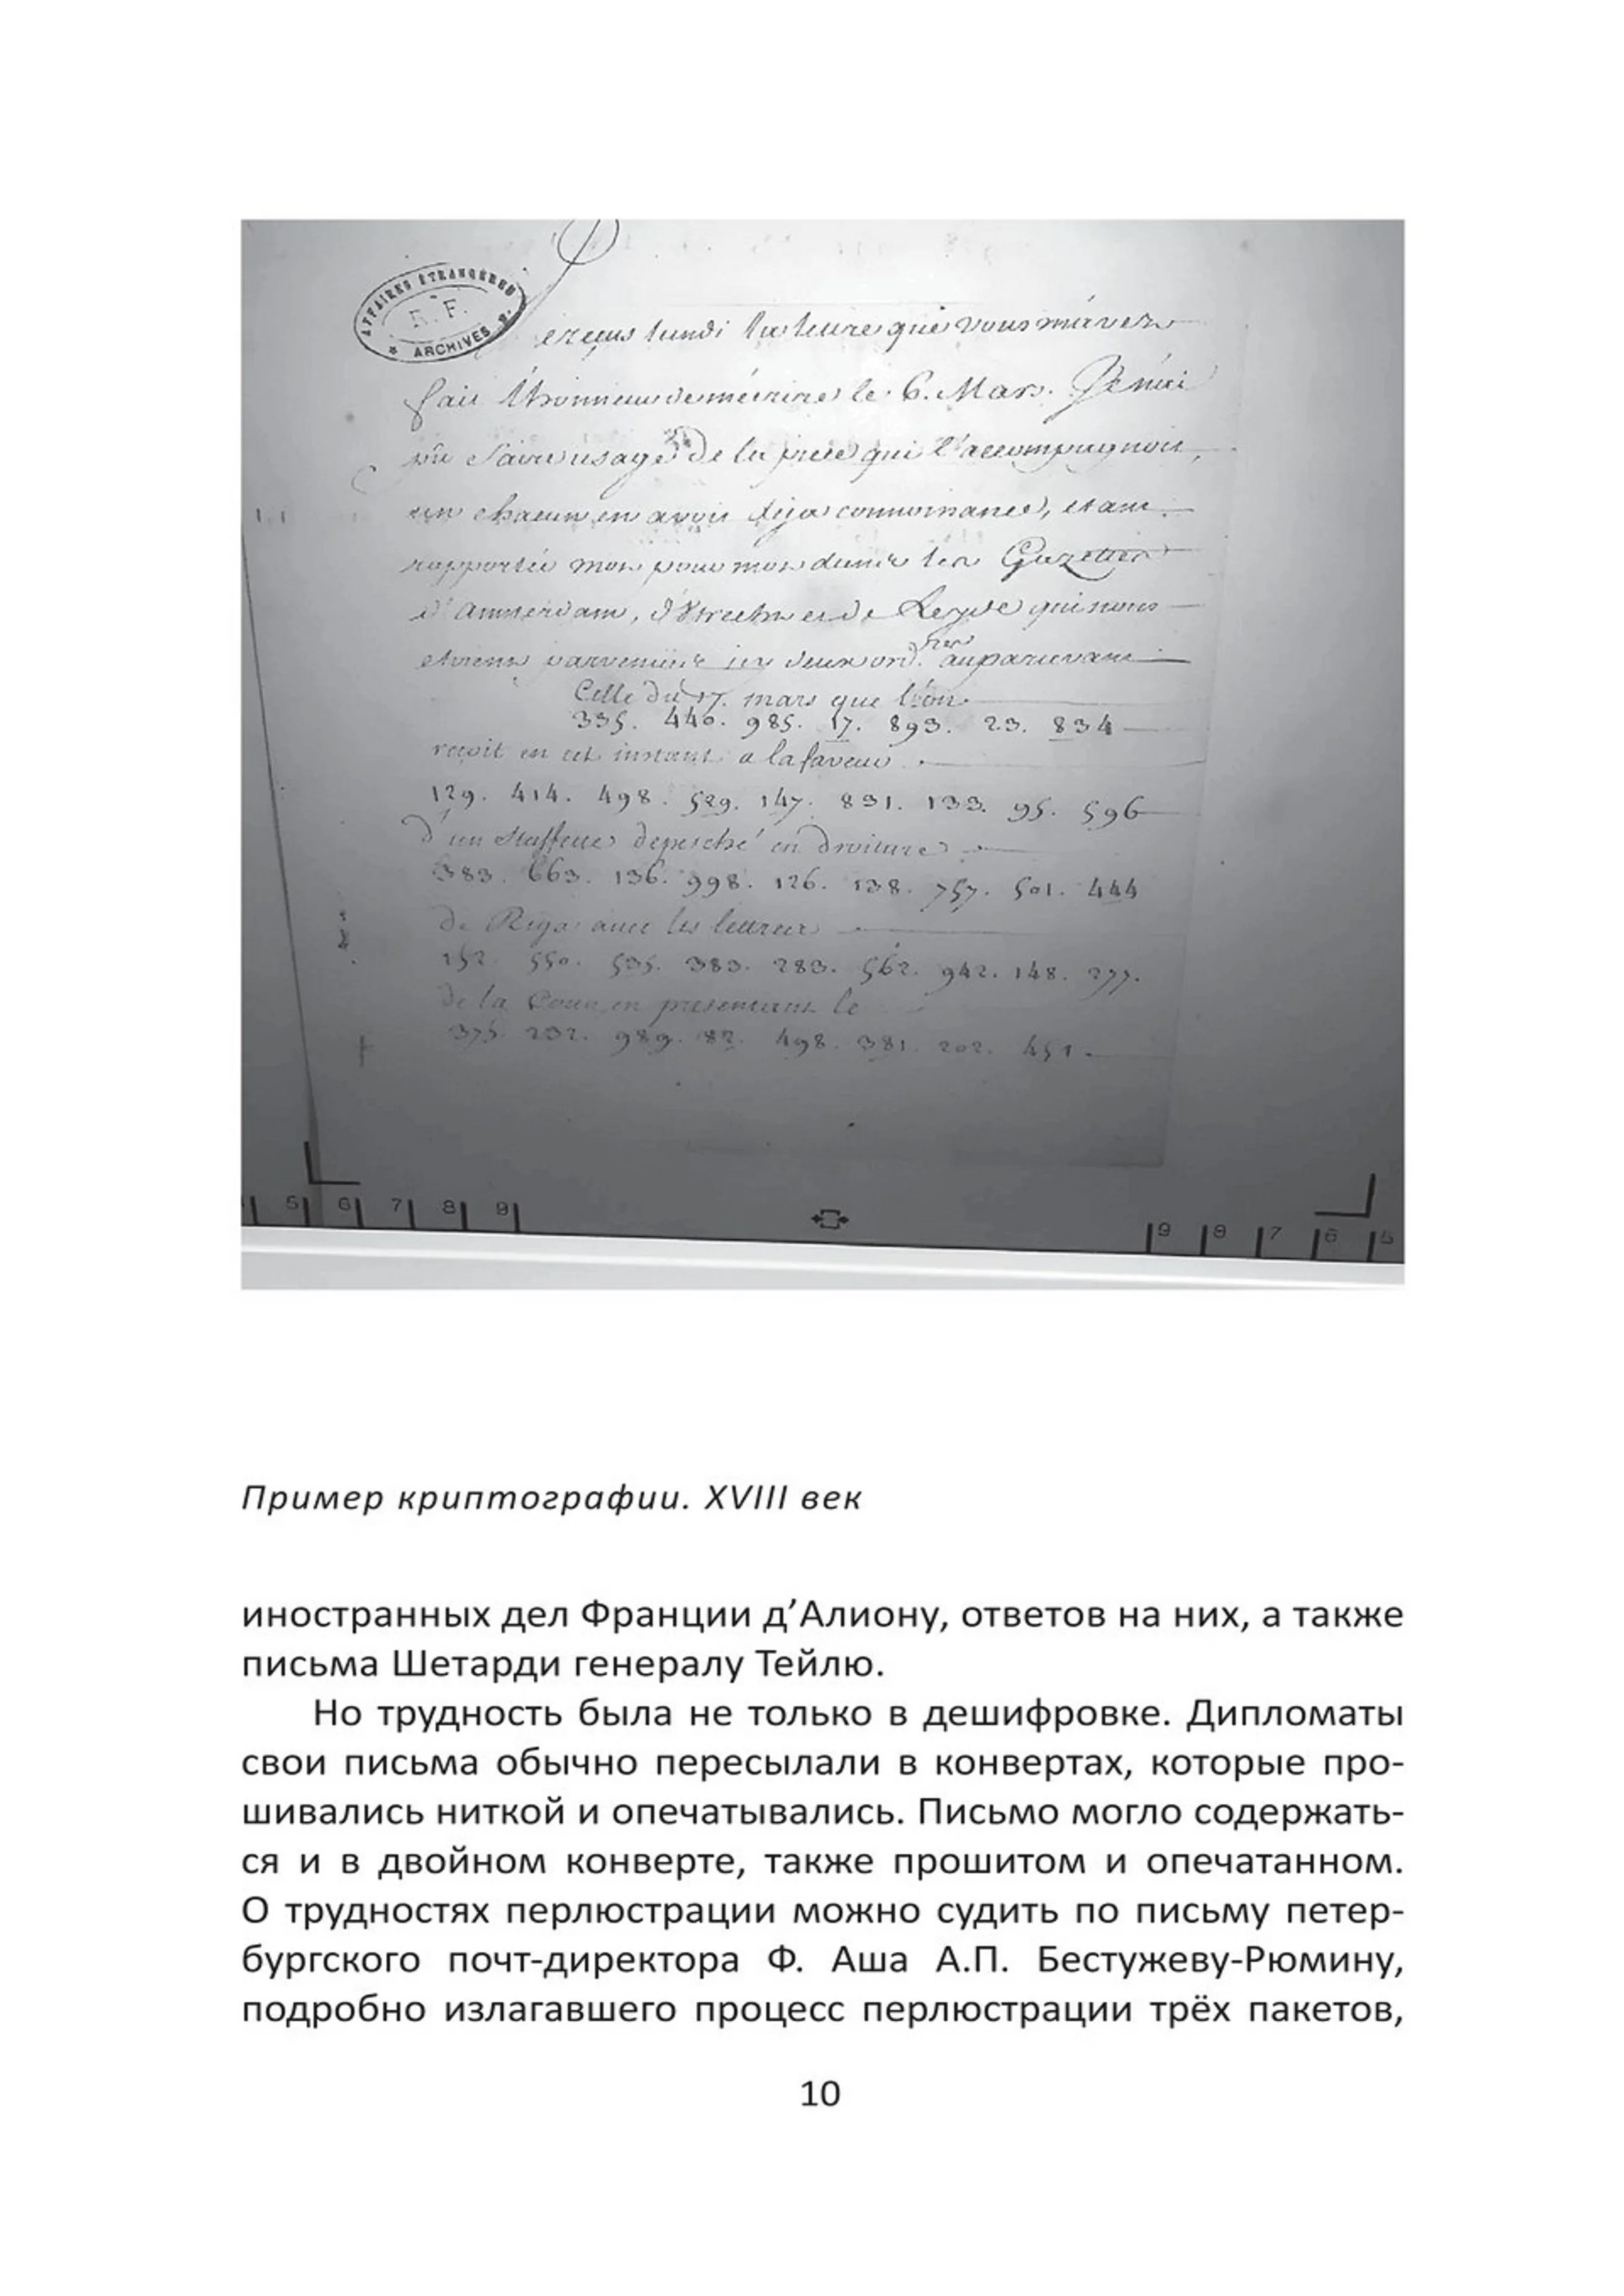 AFFAIRES ÉTRANGÈRES
R. F.
* ARCHIVES
lundi la que vous m'avez
fait l'honneur de le 6. Mars. Je n'ai
usage de la qui l'accompagnoit,
un chacun en avoir deja connoissance, etant
rapportée mot pour mot dans les Gazettes
d'Amsterdam, d'Utrecht et de Leyde qui nous
auparavant
Celle du 17. mars que l'on
335. 440. 985. 17. 893. 23. 834
reçoit en cet instant a la faveur
129. 414. 498. 529. 147. 831. 133. 95. 596
d'un depesché en droiture
383. 663. 136. 998. 126. 138. 757. 501. 444
de Riga avec les lettres
152. 550. 535. 383. 283. 562. 942. 148. 277.
de la Cour, en presentant le
375. 232. 989. 82. 498. 381. 202. 451.
5 6 7 8 9
9 8 7 6 5
Пример криптографии. XVIII век
иностранных дел Франции д’Алиону, ответов на них, а также
письма Шетарди генералу Тейлю.
Но трудность была не только в дешифровке. Дипломаты
свои письма обычно пересылали в конвертах, которые про-
шивались ниткой и опечатывались. Письмо могло содержать-
ся и в двойном конверте, также прошитом и опечатанном.
О трудностях перлюстрации можно судить по письму петер-
бургского почт-директора Ф. Аша А.П. Бестужеву-Рюмину,
подробно излагавшего процесс перлюстрации трёх пакетов,
10